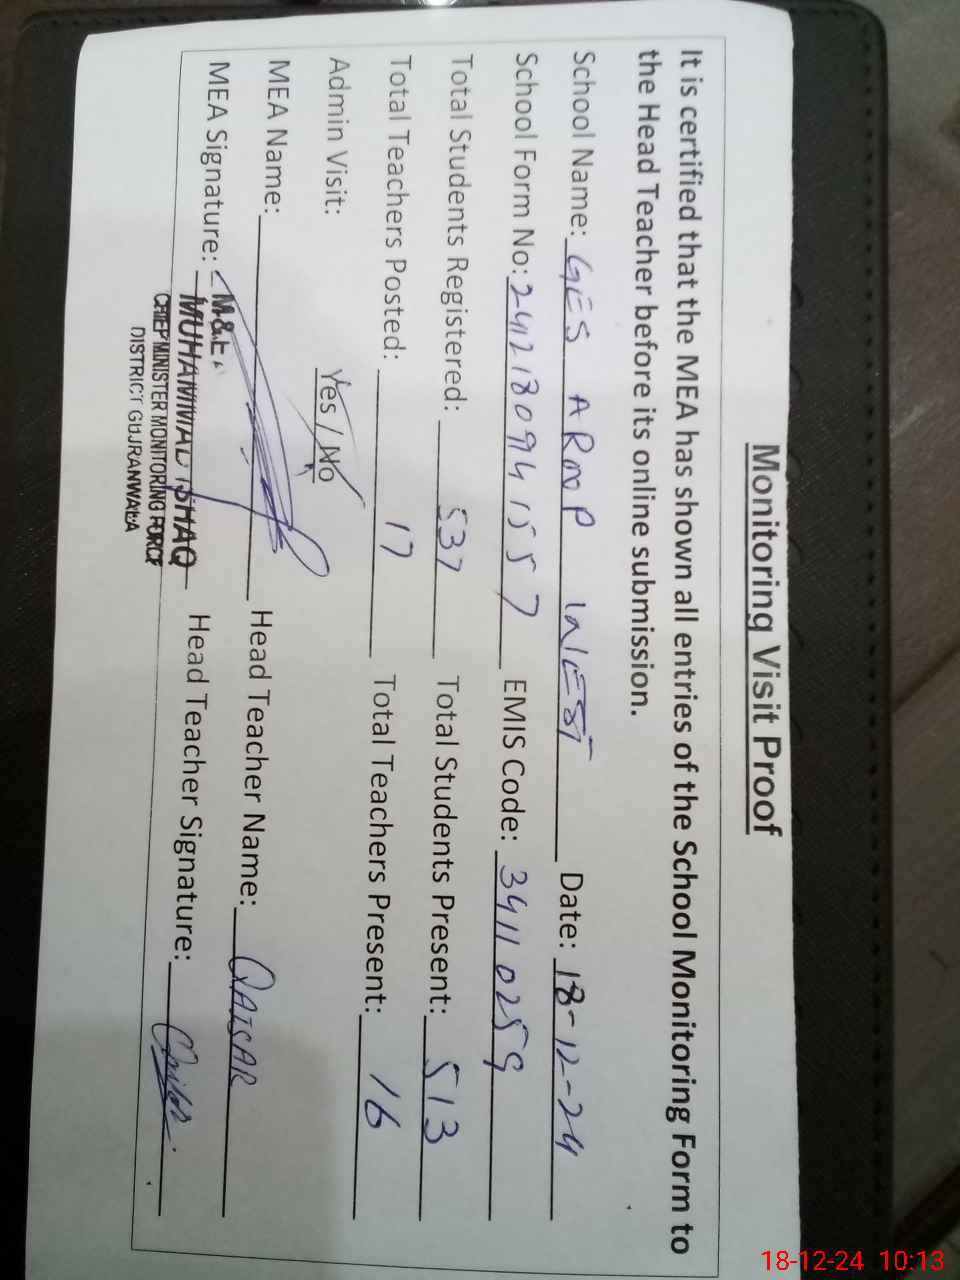 Monitoring Visit Proof
It is certified that the MEA has shown all entries of the School Monitoring Form to
the Head Teacher before its online submission.
School Name: GES ARMP WEST Date: 18-12-24
School Form No: 2412180941557 EMIS Code: 34110259
Total Students Registered: 537 Total Students Present: 513
Total Teachers Posted: 17 Total Teachers Present: 16
Admin Visit: Yes / No
MEA Name: Head Teacher Name: QAISAR
MEA Signature: Head Teacher Signature:
M&E
MUHAMMAD ISHAQ
CHIEF MINISTER MONITORING FORCE
DISTRICT GUJRANWALA
18-12-24 10:13